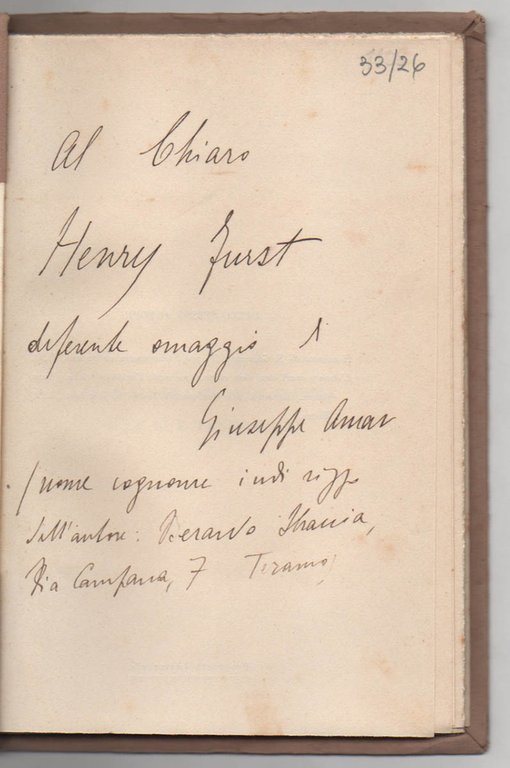 33/26
Al Chiaro
Henry Furst
deferente omaggio di
Giuseppe Amar
(nome cognome indirizzo
dell'autore: Berardo
Via Campana, 7 Teramo